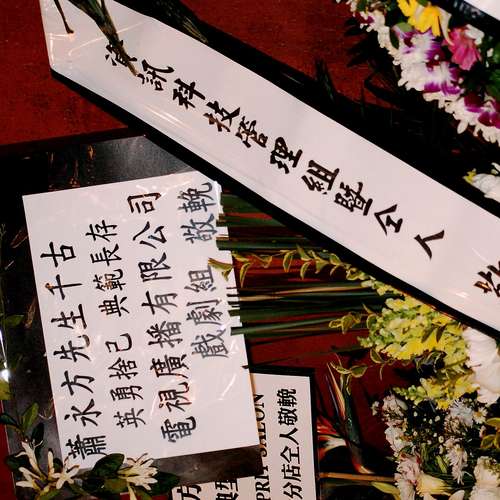 資訊科技管理組暨仝人
蕭永方先生千古
英勇捨己 典範長存
電視廣播有限公司
戲劇組 敬輓
SALON
分店仝人敬輓